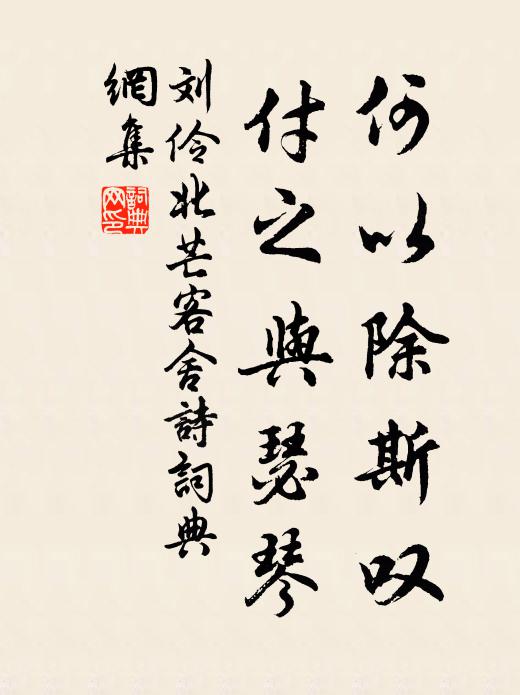 何以除斯叹
付之與瑟琴
刘伶北芒客舍詩詞典
網集
詞典网印